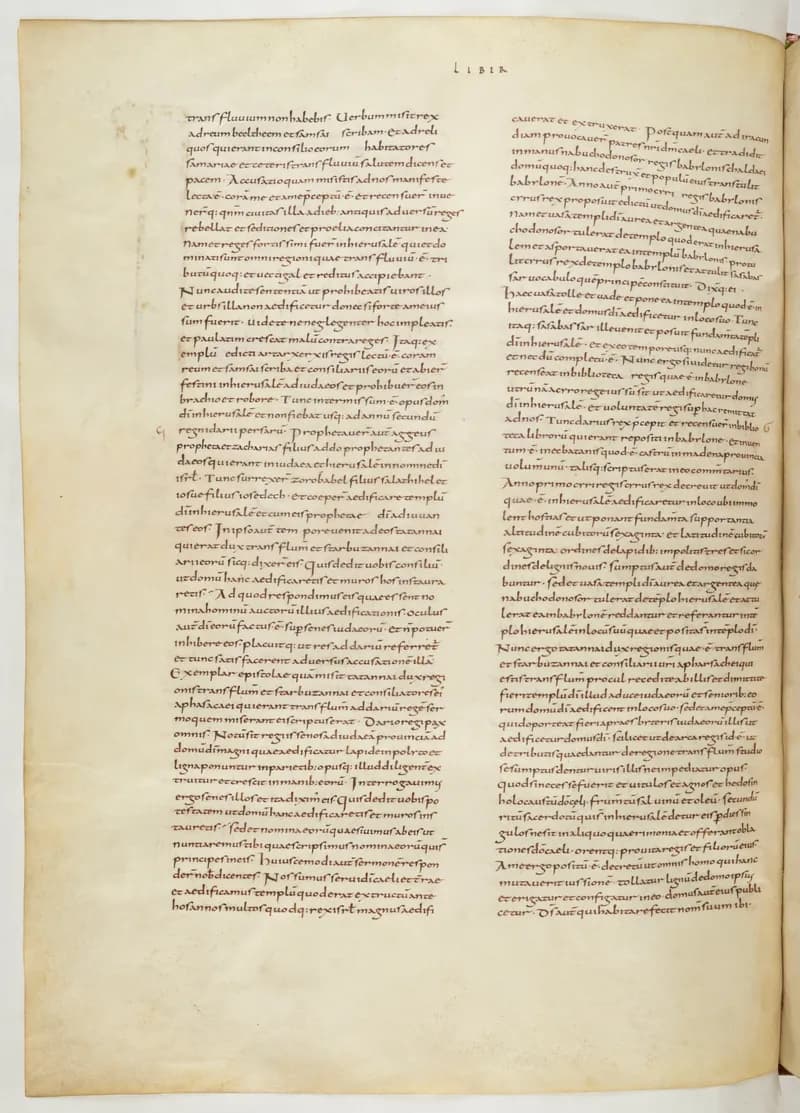 LIBER
transfluuium non habebis. Uerbum misit rex
ad reum beeltheem et samsai scribam. Et ad reli
quos qui erant in consilio eorum habitatores
samariae et ceteris trans fluuiū salutem dicens et
pacem. Accusatio quam misistis ad nos manifeste
lecta ē. coram me et a me p̄ceptū ē. et recensuer̄ inue
ner̄q: qnm ciuitas illa a dieb: antiquis aduersū reges
rebellat et seditiones et proelia concitantur in ea
Nam et reges fortissimi fuer̄ in hierusalē qui et do
minati sunt omni regioni quae trans fluuiū ē. tri
butū quoq: et uectigal et reditus accipiebant.
Nunc audite sententiā ut prohibeatis uiros illos
et urbs illa non aedificetur donec si forte a me ius
sum fuerit. uidete ne neglegenter hoc impleatis.
et paulatim crescat malū contra reges. Itaq: ex
emplū edicti artarxerxis regis lectū ē. coram
reum et samsai scriba et consiliariis eorū et abier̄
festini in hierusalē ad iudaeos et prohibuer̄ eos in
brachio et robore. Tunc intermissum ē. opus dom̄
dn̄i in hierusalē et non fiebat usq: ad annū secundū
regni darii persarū. Prophetauer̄ aut̄ aggeus
propheta et zacharias filius addo prophetantes ad iu
daeos qui erant in iudaea et hierusalē in nomine dī
isrl̄. Tunc surrexer̄ zorobabel filius salathihel et
iosue filius iosedech. et coeper̄ aedificare templū
dī in hierusalē et cum eis prophetae dī adiuuan
tes eos. In ipso aut̄ tem pore uenit ad eos tatannai
qui erat dux trans flum̄ et starbuzannai et consili
arii eorū sicq: dixer̄ eis Quis dedit uobis consiliū
ut domū hanc aedificaretis et muros hos instaura
retis. Ad quod respondimus eis quae essent no
mina hominū auctorū illius aedificationis. Oculus
aut̄ dī eorū factus ē. sup̄ senes iudaeorū. Et n̄ potuer̄
inhibere eos placuitq: ut res ad dariū referret̄
et tunc satisfacerent aduersus accusationē illā
Exemplar epistolae quā misit tatannai dux regi
onis trans flum̄ et starbuzannai et consiliatores ei
aphasacaei qui erant trans flum̄ ad dariū regē ser
mo quem miserant ei sic scriptus erat. Dario regi pax
omnis. Notū sit regi isse nos ad iudaeā prouinciā ad
domū dī magni quae aedificatur lapide inpolito et
ligna ponuntur in parietib: opusq: illud diligent̄ ex
truitur et crescit in manib: eorū. Interrogauimus
ergo senes illos et ita dixim̄ eis Quis dedit uobis po
testatem ut domū hanc aedificaretis et muros ins
tauretis. Sed et nomina eorū quaesiuimus ab eis ut
nuntiaremus tibi quae scripsimus nomina eorū quis
principes in eis. Huiuscemodi aut̄ sermonē respon
der̄ nob̄ dicentes. Nos sumus serui dī caeli et t̄rae
et aedificamus templū quod erat extructū ante
hos annos multos quodq: rex isrl̄ magnus aedifi
cauerat et extruxerat. Postquam aut̄ ad iracun
diam prouocauer̄ patres nr̄i dm̄ caeli. et tradidit
in manus nabuchodonosor regis babilonis chaldaei
domū quoq: hanc destruxit et populū eius transtulit
babilonē. Anno aut̄ primo cyri regis babilonis
cyrus rex proposuit edictū ut domus dī aedificaret̄.
Nam et uasa templi dī aurea et argentea quae nabu
chodonosor tulerat de templo quod erat in hierusa
lem et asportauerat ea in templū babilonis protu
lit cyrus rex de templo babilonis et data sunt sasabas
sar uocabulo quē principē constituit. Dixq: ei.
Haec uasa tolle et uade et pone ea in templo quod ē. in
hierusalē et domus dī aedificetur in loco suo. Tunc
itaq: sasabassar ille uenit et posuit fundam̄ta tēpli
dī in hierusalē. et ex eo tempore usq: nunc aedificat̄
et necdū completū ē. Nunc ergo si uidetur regi bonū
recenseat in bibliotheca regis quae ē. in babilone
utrū nā a cyro rege iussū sit ut aedificaretur domus
dī in hierusalē. et uoluntatē regis sup̄ hac re mittat
ad nos. Tunc darius rex p̄cepit et recensuer̄ in biblio
teca librorū qui erant repositi in babilone. Et inuen
tum ē. in ecbatanis quod ē. castrū in madena prouincia
uolumen unū. talisq: scriptus erat in eo commentarius.
Anno primo cyri regis cyrus rex decreuit ut dom̄ dī
quae ē. in hierusalē aedificaretur in loco ubi immo
lent hostias et ut ponant fundam̄ta supportantia
altitudinē cubitorū sexaginta. et latitudinē cubitorū
sexaginta. ordines de lapidib: impolitis tres et sic or
dines de lignis nouis. sumptus aut̄ de domo regis da
buntur. sed et uasa templi dī aurea et argentea quae
nabuchodonosor tulerat de tēplo hierusalē et attu
lerat ea in babilonē reddantur et referantur in tē
plo hierusalē in locū suū quae et posita sint in tēplo dī.
Nunc ergo tatannai dux regionis quae ē. trans flum̄
et starbuzannai et consiliarii uri apharsachei qui
estis trans flum̄ procul recedite ab illis et dimittite
fieri templū dī illud a duce iudaeorū et seniorib: eo
rum domū dī aedificent in loco suo. Sed et a me p̄ceptū ē.
quid oporteat fieri a presbiteris iudaeorū illis ut
aedificetur domus dī. scilicet ut de arca regis id ē. ut
de tributis quae dantur de regione trans flum̄ studio
se sumptus dentur uiris illis ne impediatur opus.
Quod si necesse fuerit et uitulos et agnos et hedos in
holocaustū dō caeli. frum̄tū sal uinū et oleū. secundū
ritū sacerdotū qui sunt in hierusalē detur eis p̄ dies sin
gulos ne sit in aliquo quaerimonia et offerant obla
tiones dō caeli. orentq: pro uita regis et filiorū eius
A me ergo positū ē. decretū ut omnis homo qui hanc
mutauerit iussionē. tollatur lignū de domo ipsius
et erigatur et configatur in eo. domus aut̄ eius publi
cetur. Ds̄ aut̄ qui habitare fecit nom̄ suum ibi.